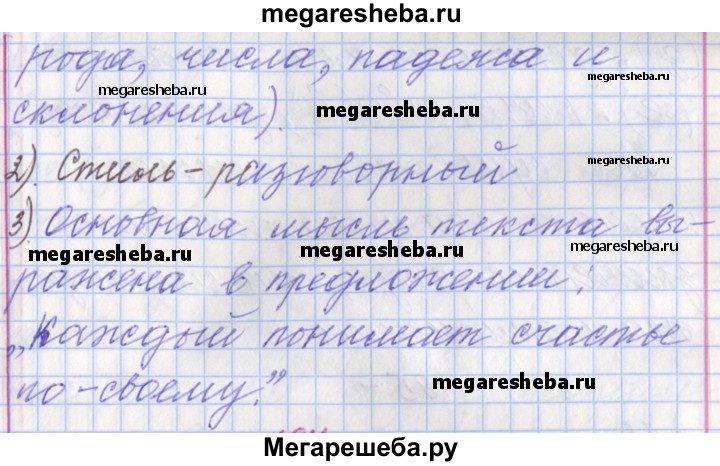 megaresheba.ru
рода, числа, падежа и
megaresheba.ru
megaresheba.ru
склонения).
megaresheba.ru
2). Стиль - разговорный
megaresheba.ru
3). Основная мысль текста вы-
megaresheba.ru
megaresheba.ru
megaresheba.ru
ражена в предложении:
„Каждый понимает счастье
по-своему."
megaresheba.ru
Мегарешеба.ру